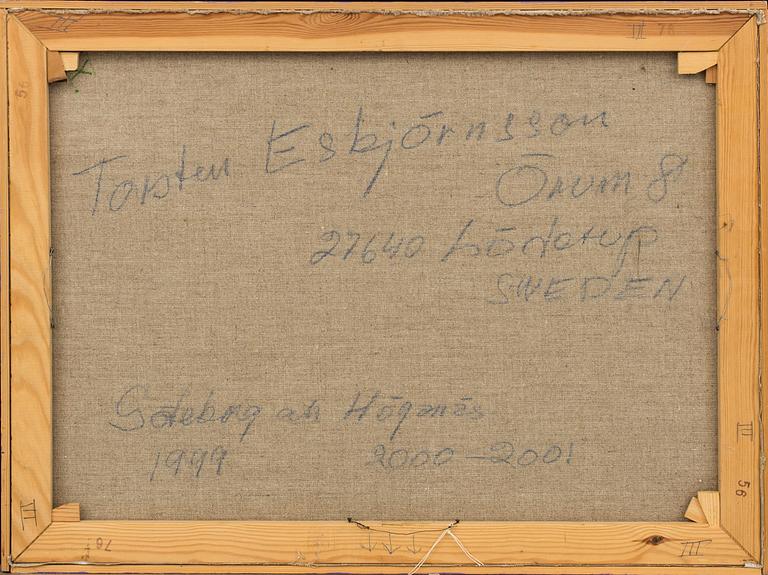 VI III 76
56
Torsten Esbjörnsson
Örum 8
27640 Löderup
SWEDEN
Göteborg och Höganäs
1999 2000-2001
III
56
VI
76 III